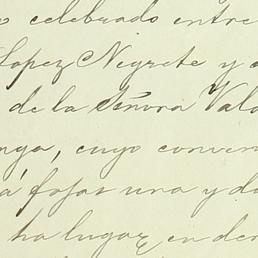 celebrado entre
Lopez Negrete y
de la Señora Vald
nga, cuyo conven
á fojas una y do
ha lugar en der